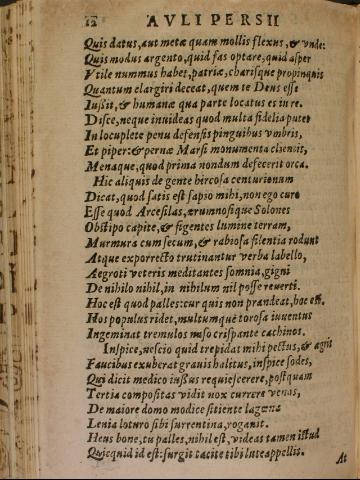 12 AVLI PERSII
Quis datus, aut metæ quam mollis flexus, & vnde:
Quis modus argento, quid fas optare, quid asper
Vtile nummus habet, patriæ, charisque propinquis
Quantum elargiri deceat, quem te Deus esse
Iußit, & humana qua parte locatus es in re.
Disce, neque inuideas quod multa fidelia putet
In locuplete penu defensis pinguibus vmbris,
Et piper: & pernæ Marsi monumenta clientis,
Menaque, quod prima nondum defecerit orca.
Hic aliquis de gente hircosa centurionum
Dicat, quod satis est sapio mihi, non ego curo
Esse quod Arcesilas, ærumnosique Solones
Obstipo capite, & figentes lumine terram,
Murmura cum secum, & rabiosa silentia rodunt
Atque exporrecto trutinantur verba labello,
Aegroti veteris meditantes somnia, gigni
De nihilo nihil, in nihilum nil posse reuerti.
Hoc est quod palles: cur quis non prandeat, hoc est.
Hos populus ridet, multumque torosa iuuentus
Ingeminat tremulos naso crispante cachinos.
Inspice, nescio quid trepidat mihi pectus, & ægris
Faucibus exuberat grauis halitus, inspice sodes,
Qui dicit medico iussus requiescere, postquam
Tertia compositas vidit nox currere venas,
De maiore domo modice sitiente lagena
Lenia loturo sibi surrentina, rogauit.
Heus bone, tu palles, nihil est, videas tamen istud
Quicquid id est: surgit tacite tibi lutea pellis.
At